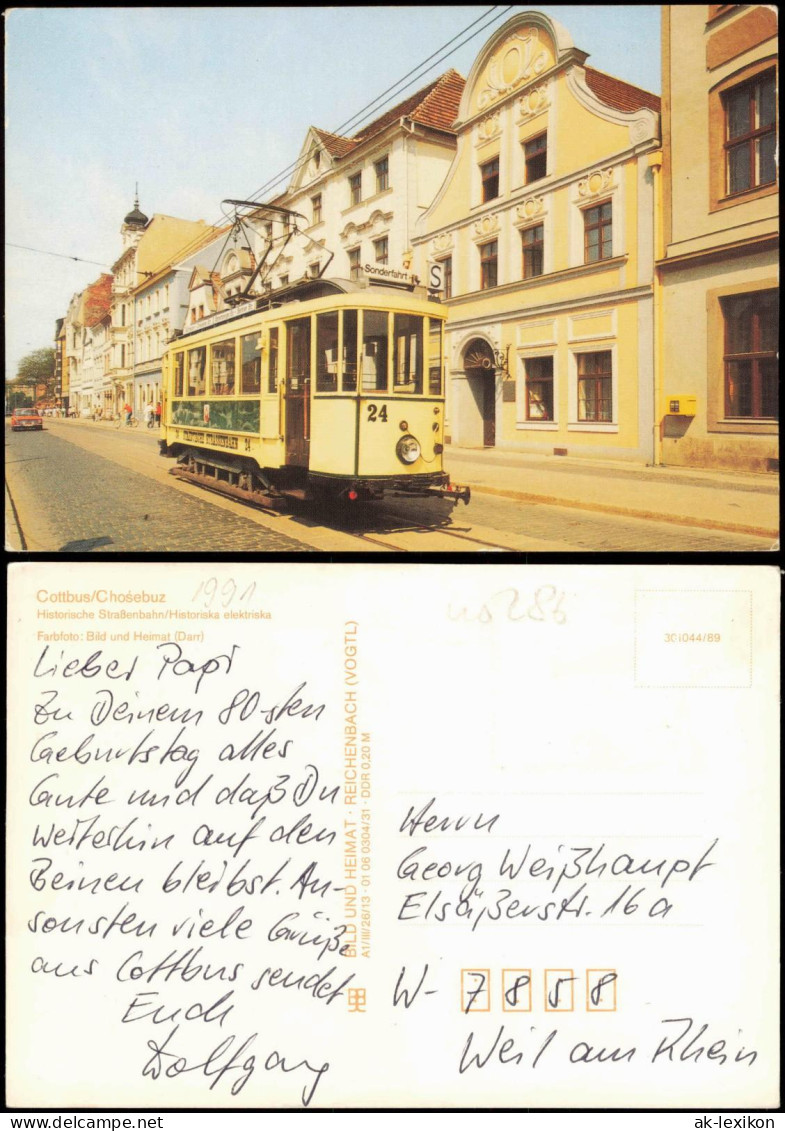 Sonderfahrt
S
24
24
Cottbus/Chośebuz
1991
Historische Straßenbahn/Historiska elektriska
Farbfoto: Bild und Heimat (Darr)
Lieber Papi
Zu Deinem 80-sten
Geburtstag alles
Gute und daß Du
weiterhin auf den
Beinen bleibst. An-
sonsten viele Grüße
aus Cottbus sendet
Euch
Wolfgang
BILD UND HEIMAT · REICHENBACH (VOGTL)
A1/III/26/13 · 01 06 0304/31 · DDR 0,20 M
301044/89
Herrn
Georg Weißhaupt
Elsäßerstr. 16a
W- 7858
Weil am Rhein
ak-lexikon